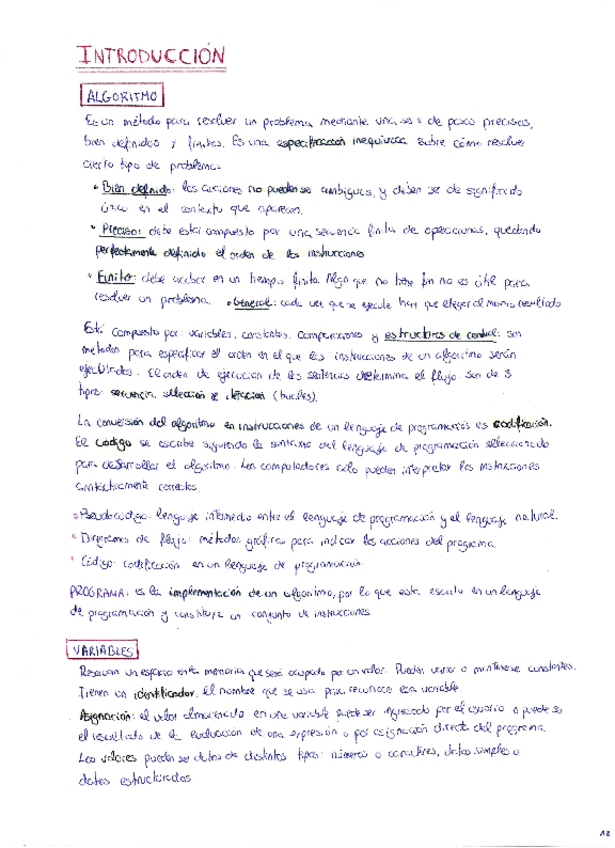 INTRODUCCIÓN
ALGORITMO
Es un método para resolver un problema mediante una serie de pasos precisos,
bien definidos y finitos. Es una especificación inequívoca sobre cómo resolver
cierto tipo de problema.
• Bien definido: las acciones no pueden ser ambiguas, y deben ser de significado
único en el contexto que aparecen.
• Preciso: debe estar compuesto por una secuencia finita de operaciones, quedando
perfectamente definido el orden de las instrucciones
• Finito: debe acabar en un tiempo finito. Algo que no tiene fin no es útil para
resolver un problema. • General: cada vez que se ejecute hay que llegar al mismo resultado
Está compuesto por: variables, constantes, comparaciones y estructuras de control: son
métodos para especificar el orden en el que las instrucciones de un algoritmo serán
ejecutadas. El orden de ejecución de las sentencias determina el flujo. Son de 3
tipos: secuencia, selección e iteración (bucles).
La conversión del algoritmo en instrucciones de un lenguaje de programación es codificación.
El código se escribe siguiendo la sintaxis del lenguaje de programación seleccionado
para desarrollar el algoritmo. Los computadores solo pueden interpretar las instrucciones
sintácticamente correctas.
• Pseudocódigo: lenguaje intermedio entre el lenguaje de programación y el lenguaje natural.
• Diagramas de flujo: métodos gráficos para indicar las acciones del programa.
• Código: codificación en un lenguaje de programación.
PROGRAMA: es la implementación de un algoritmo, por lo que está escrito en un lenguaje
de programación y constituye un conjunto de instrucciones
VARIABLES
Reservan un espacio en la memoria que será ocupado por un valor. Pueden variar o mantenerse constantes.
Tienen un identificador, el nombre que se usa para reconocer esa variable.
Asignación: el valor almacenado en una variable puede ser ingresado por el usuario o puede ser
el resultado de la evaluación de una expresión o por asignación directa del programa.
Los valores pueden ser datos de distintos tipos: números o caracteres, datos simples o
datos estructurados